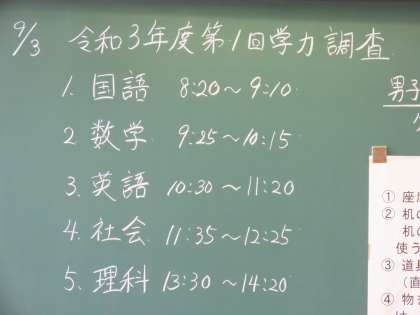 9/3 令和3年度第1回学力調査
1. 国語 8:20～9:10
2. 数学 9:25～10:15
3. 英語 10:30～11:20
4. 社会 11:35～12:25
5. 理科 13:30～14:20
男子
①
② 机の
机の
使う
③ 道具
(直
④ 物を